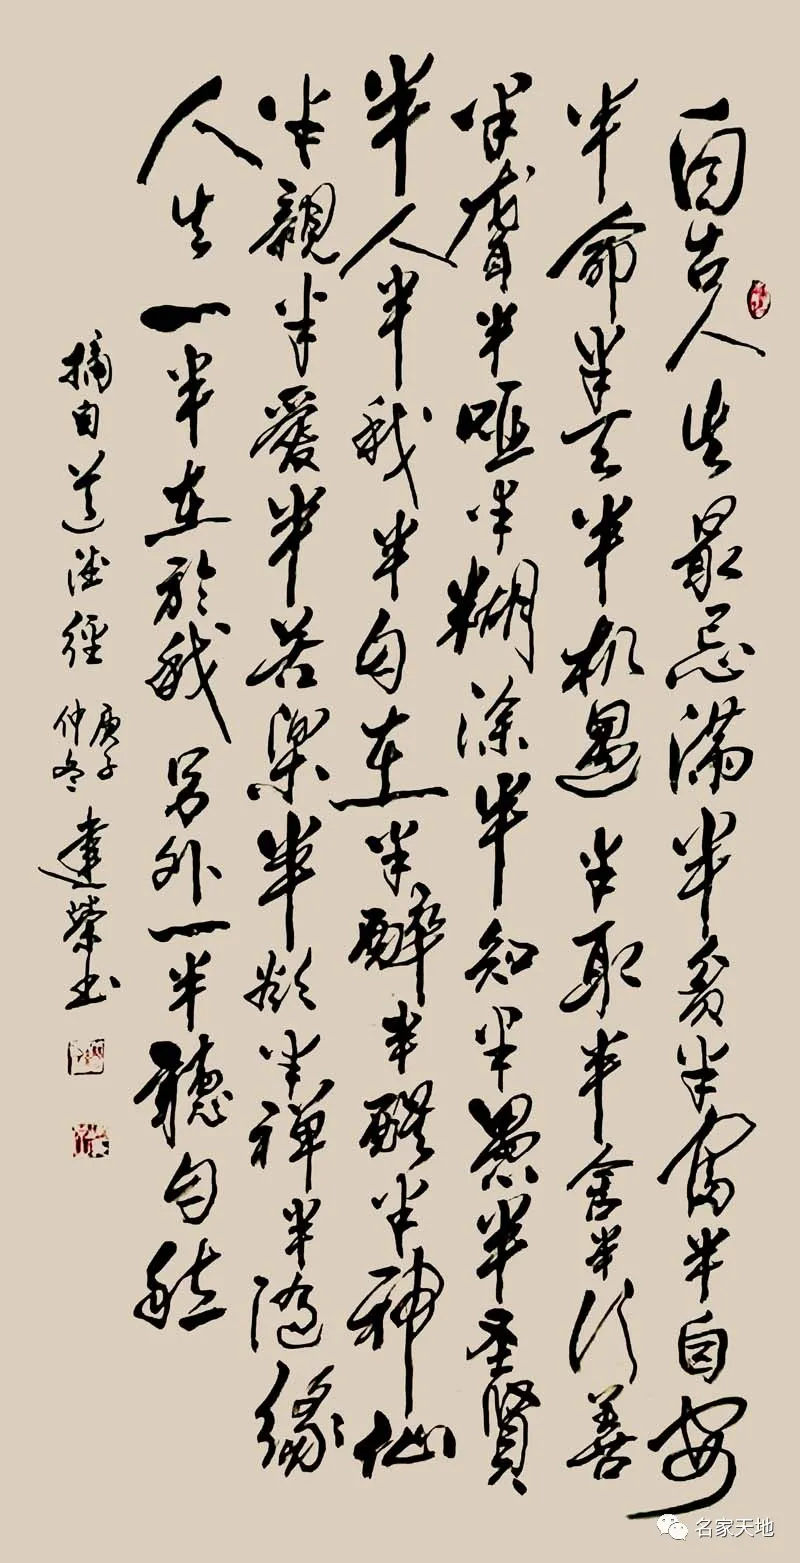 自古人生最忌滿半貧半富半自安
半命半天半机遇半取半舍半行善
半聾半啞半糊涂半知半愚半圣賢
半人半我半自在半醉半醒半神仙
半親半愛半苦樂半欲半禪半隨緣
人生一半在於我另外一半聽自然
摘自道德經
庚子
仲冬
達榮书
名家天地